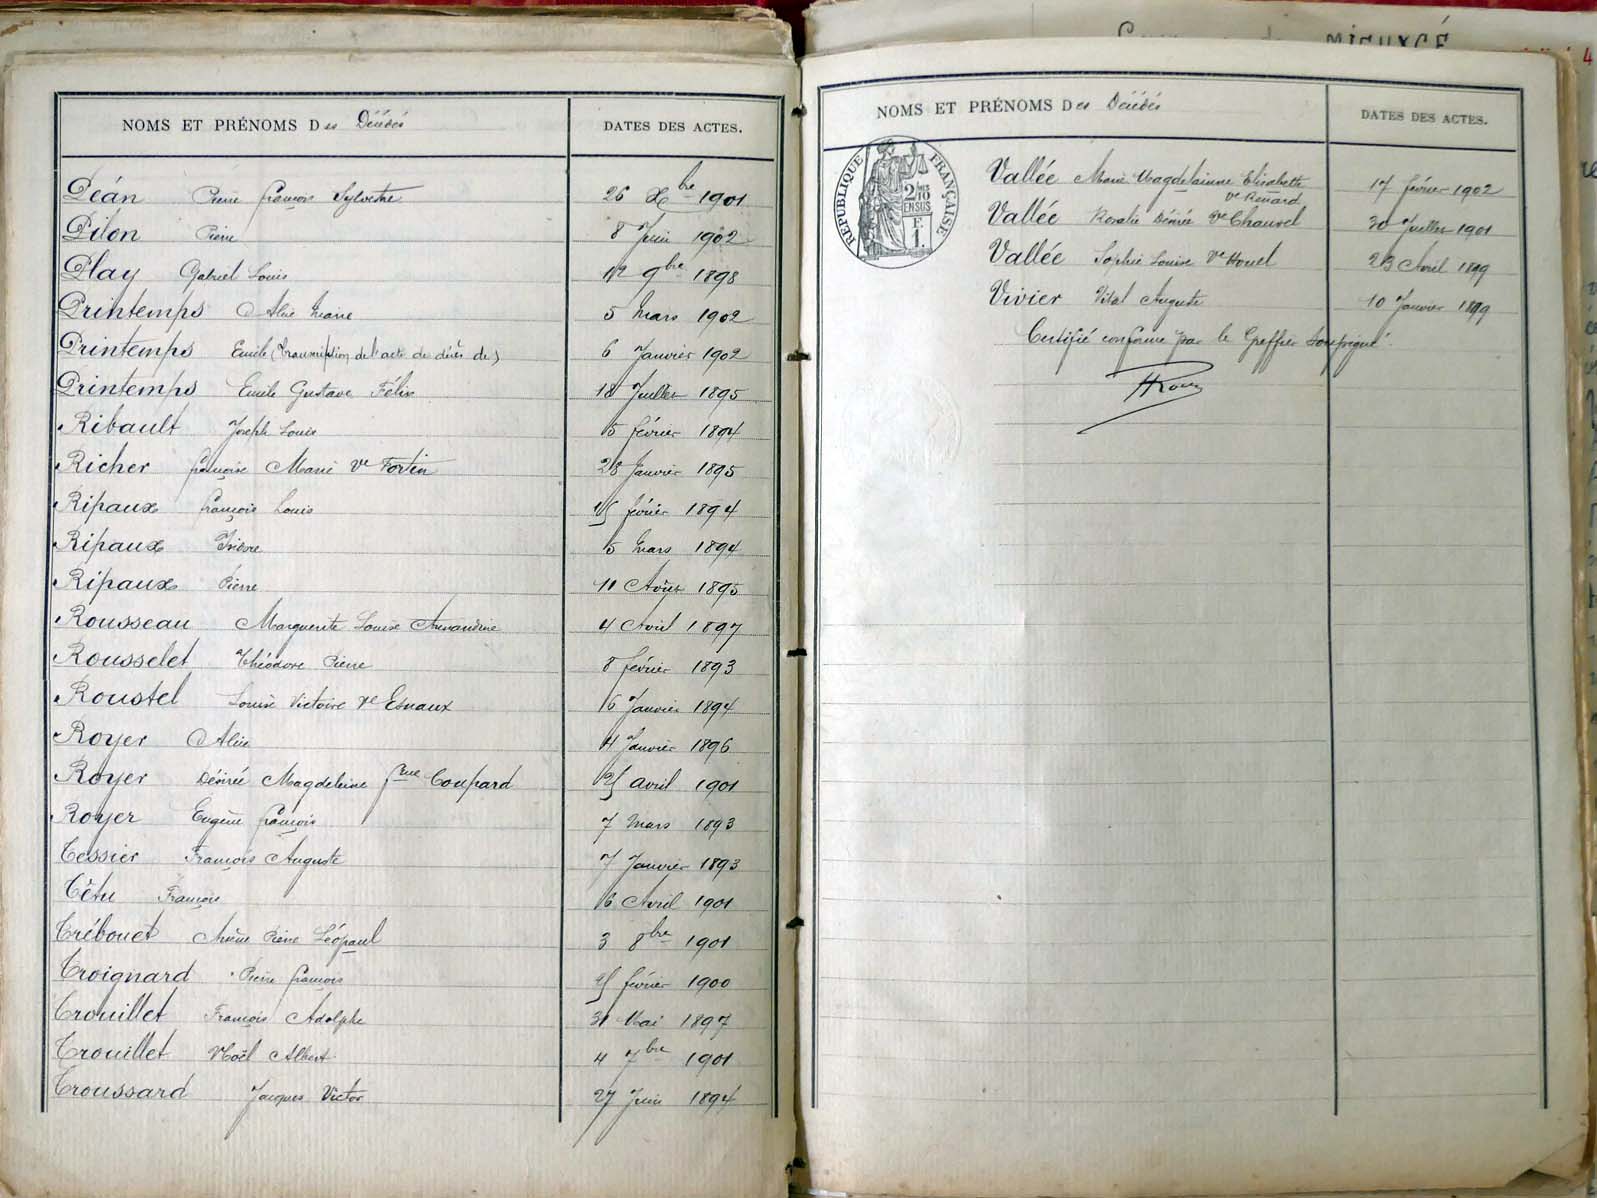 NOMS ET PRÉNOMS Des Décédés DATES DES ACTES.
Péan Pierre François Sylvestre 26 Xbre 1901
Pilon Pierre 8 Juin 1902
Play Gabriel Louis 12 9bre 1898
Printemps Alice Marie 5 Mars 1902
Printemps Emile (transmission de l'acte de décès de) 6 Janvier 1902
Printemps Emile Gustave Félix 18 Juillet 1895
Ribault Joseph Louis 5 février 1894
Richer françoise Marie Ve Fortin 28 Janvier 1895
Ripaux françois Louis 25 février 1894
Ripaux Pierre 5 Mars 1894
Ripaux Pierre 11 Août 1895
Rousseau Marguerite Louise Amandine 4 Avril 1897
Rousselet Théodore Pierre 8 février 1893
Roustel Louise Victoire Ve Esnaux 6 Janvier 1894
Royer Alice 4 Janvier 1896
Royer Désirée Magdeleine fme Coupard 25 avril 1901
Royer Eugène françois 7 Mars 1893
Tessier François Auguste 7 Janvier 1893
Têtu François 16 Avril 1901
Trébouet Arsène Pierre Léopaul 3 8bre 1901
Troignard Pierre françois 25 février 1900
Trouillet François Adolphe 31 Mai 1897
Trouillet Noël Albert 4 7bre 1901
Troussard Jacques Victor 27 Juin 1894
MIEUXCÉ
4
NOMS ET PRÉNOMS Des Décédés DATES DES ACTES.
RÉPUBLIQUE FRANÇAISE
2/10 EN SUS
F. 1.
Vallée Marie Magdelainne Elisabeth Ve Renard 17 février 1902
Vallée Rosalie Désirée Ve Chauvel 30 Juillet 1901
Vallée Sophie Louise Ve Houel 23 Avril 1899
Vivier Vital Auguste 10 Janvier 1899
Certifié conforme par le Greffier soussigné.